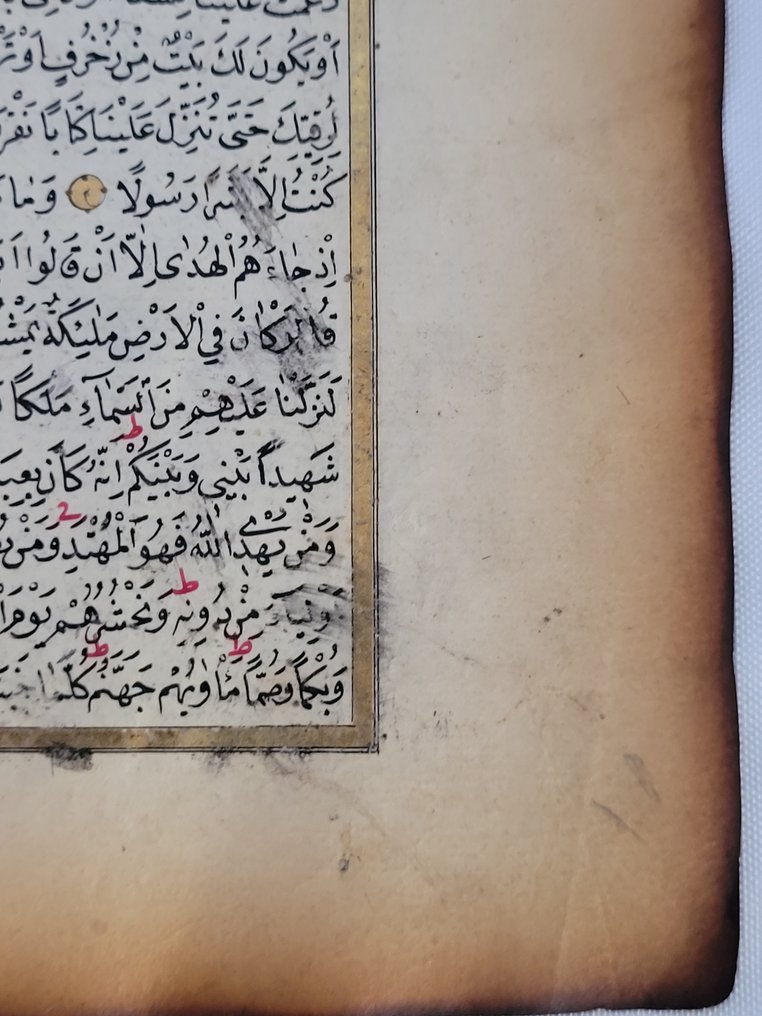 زعمت علينا
اَوْ يَكُونَ لَكَ بَيْتٌ مِنْ زُخْرُفٍ اَوْ
لِرُقِيِّكَ حَتّٰى تُنَزِّلَ عَلَيْنَا كِتَابًا نَقْرَ
كُنْتُ اِلَّا بَشَرًا رَسُولًا وَمَا
اِذْ جَاءَهُمُ الْهُدٰى اِلَّا اَنْ قَالُوا اَ
قُلْ لَوْ كَانَ فِي الْاَرْضِ مَلٰئِكَةٌ يَمْشُ
لَنَزَّلْنَا عَلَيْهِمْ مِنَ السَّمَاءِ مَلَكًا
شَهِيدًا بَيْنِي وَبَيْنَكُمْ ط اِنَّهُ كَانَ بِعِبَا
وَمَنْ يَهْدِ اللّٰهُ فَهُوَ الْمُهْتَدِ وَمَنْ
مِنْ دُونِهِ ط وَنَحْشُرُهُمْ يَوْمَ
وَبُكْمًا وَصُمًّا ط مَأْوٰيهُمْ جَهَنَّمُ ط كُلَّمَا